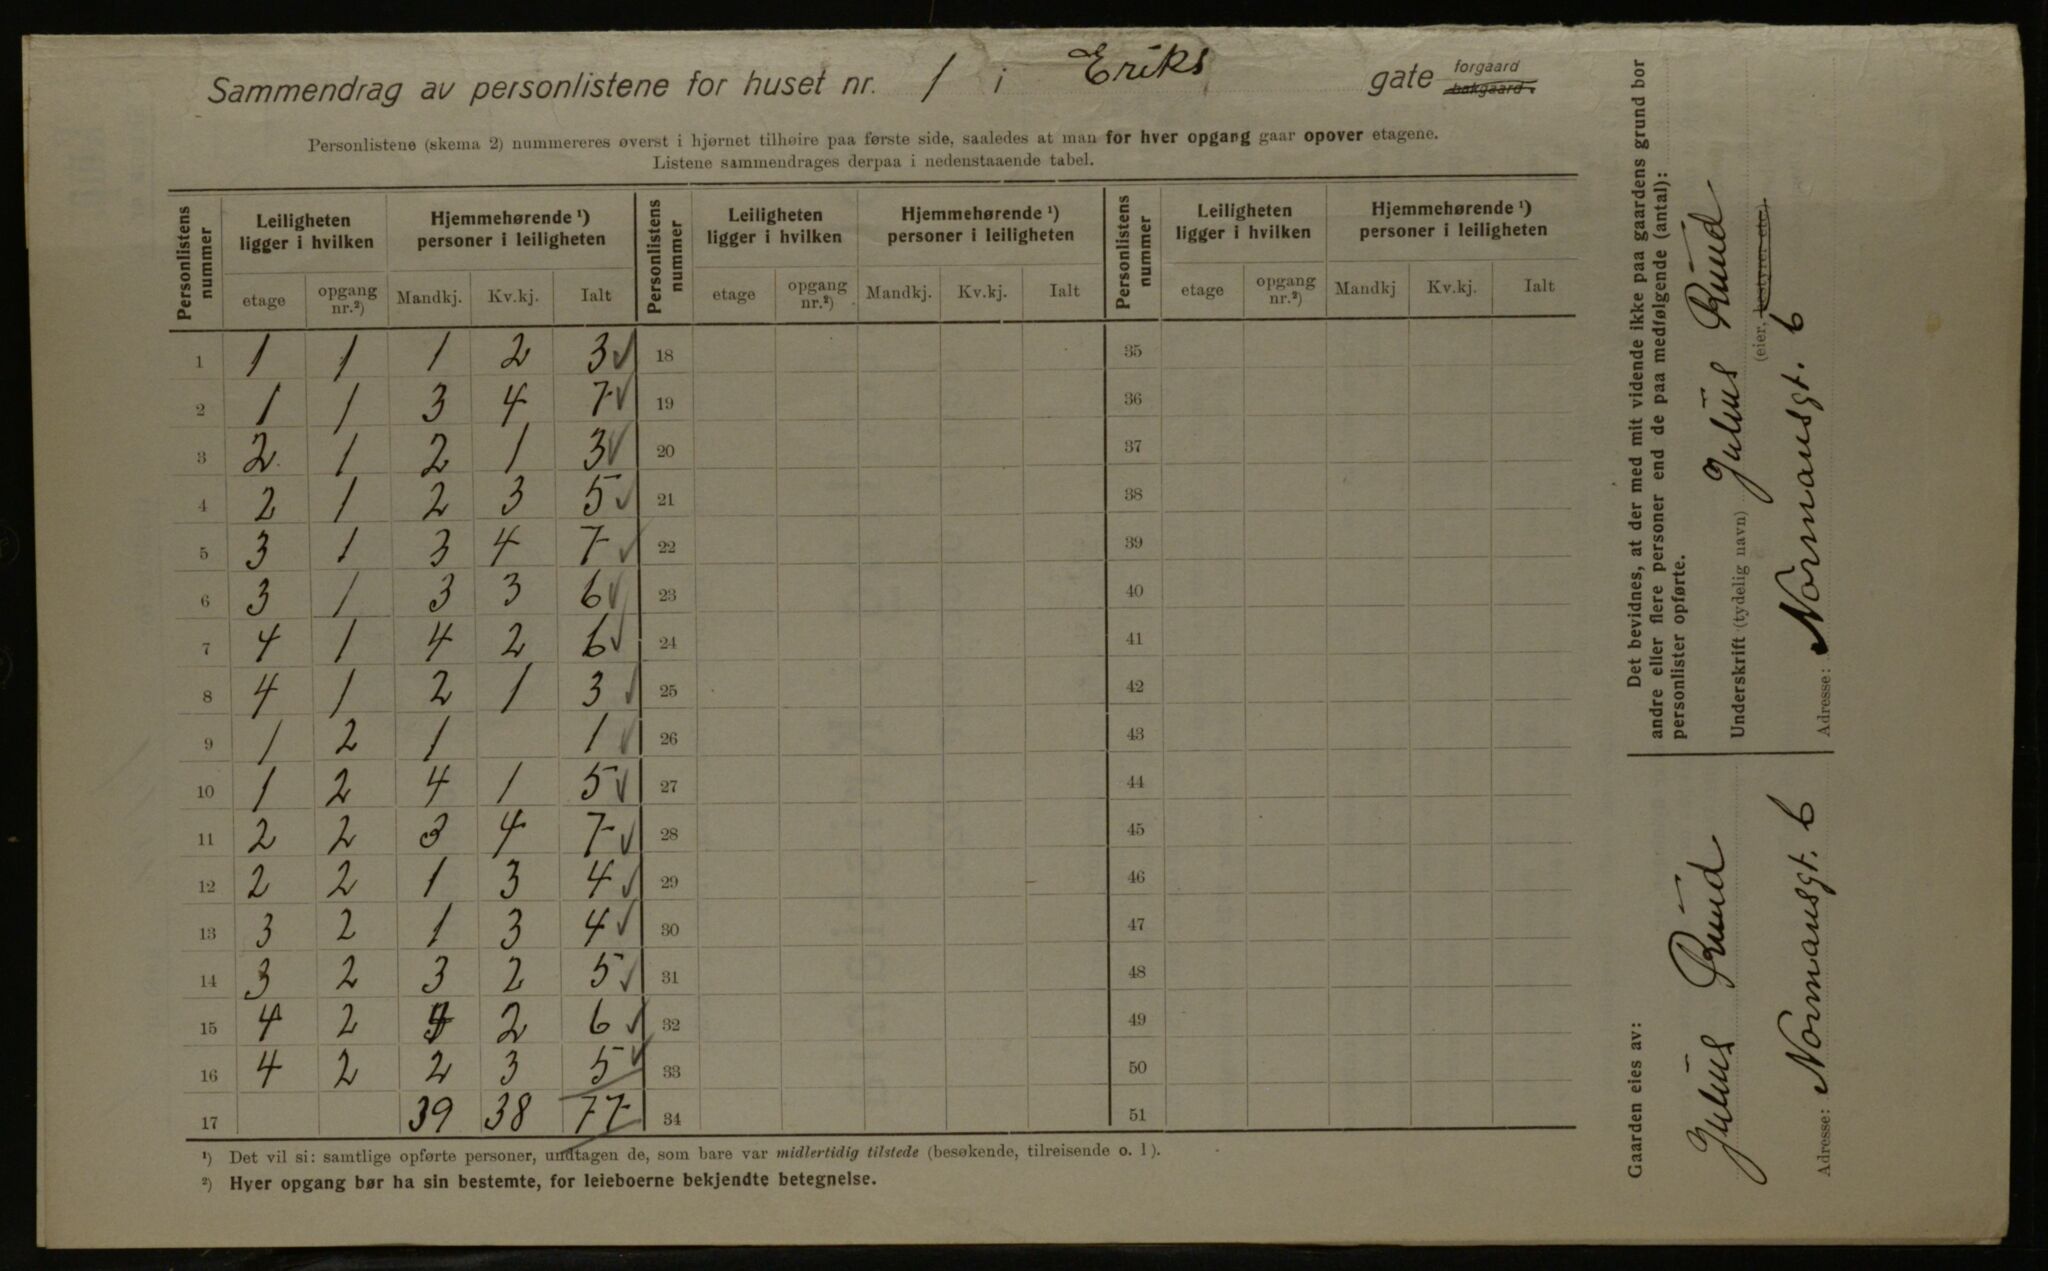 Sammendrag av personlistene for huset nr. 1 i Eriks gate forgaard bakgaard.
Personlistene (skema 2) nummereres øverst i hjørnet tilhøire paa første side, saaledes at man for hver opgang gaar opover etagene.
Listene sammendrages derpaa i nedenstaaende tabel.
Personlistens nummer | Leiligheten ligger i hvilken | Hjemmehørende ¹) personer i leiligheten | Personlistens nummer | Leiligheten ligger i hvilken | Hjemmehørende ¹) personer i leiligheten | Personlistens nummer | Leiligheten ligger i hvilken | Hjemmehørende ¹) personer i leiligheten
etage | opgang nr.²) | Mandkj. | Kv.kj. | Ialt | etage | opgang nr.²) | Mandkj. | Kv.kj. | Ialt | etage | opgang nr.²) | Mandkj | Kv.kj. | Ialt
1 | 1 | 1 | 1 | 2 | 3 ✓ | 18 | 35
2 | 1 | 1 | 3 | 4 | 7 ✓ | 19 | 36
3 | 2 | 1 | 2 | 1 | 3 ✓ | 20 | 37
4 | 2 | 1 | 2 | 3 | 5 ✓ | 21 | 38
5 | 3 | 1 | 3 | 4 | 7 ✓ | 22 | 39
6 | 3 | 1 | 3 | 3 | 6 ✓ | 23 | 40
7 | 4 | 1 | 4 | 2 | 6 ✓ | 24 | 41
8 | 4 | 1 | 2 | 1 | 3 ✓ | 25 | 42
9 | 1 | 2 | 1 | | 1 ✓ | 26 | 43
10 | 1 | 2 | 4 | 1 | 5 ✓ | 27 | 44
11 | 2 | 2 | 3 | 4 | 7 ✓ | 28 | 45
12 | 2 | 2 | 1 | 3 | 4 ✓ | 29 | 46
13 | 3 | 2 | 1 | 3 | 4 ✓ | 30 | 47
14 | 3 | 2 | 3 | 2 | 5 ✓ | 31 | 48
15 | 4 | 2 | 4 | 2 | 6 ✓ | 32 | 49
16 | 4 | 2 | 2 | 3 | 5 ✓ | 33 | 50
17 | | | 39 | 38 | 77 | 34 | 51
¹) Det vil si: samtlige opførte personer, undtagen de, som bare var midlertidig tilstede (besøkende, tilreisende o. l).
²) Hver opgang bør ha sin bestemte, for leieboerne bekjendte betegnelse.
Gaarden eies av:
Julius Ruud
Adresse: Normansgt. 6
Det bevidnes, at der med mit vidende ikke paa gaardens grund bor
andre eller flere personer end de paa medfølgende (antal):
personlister opførte.
Underskrift (tydelig navn) Julius Ruud
(eier, bestyrer etc.)
Adresse: Normansgt. 6